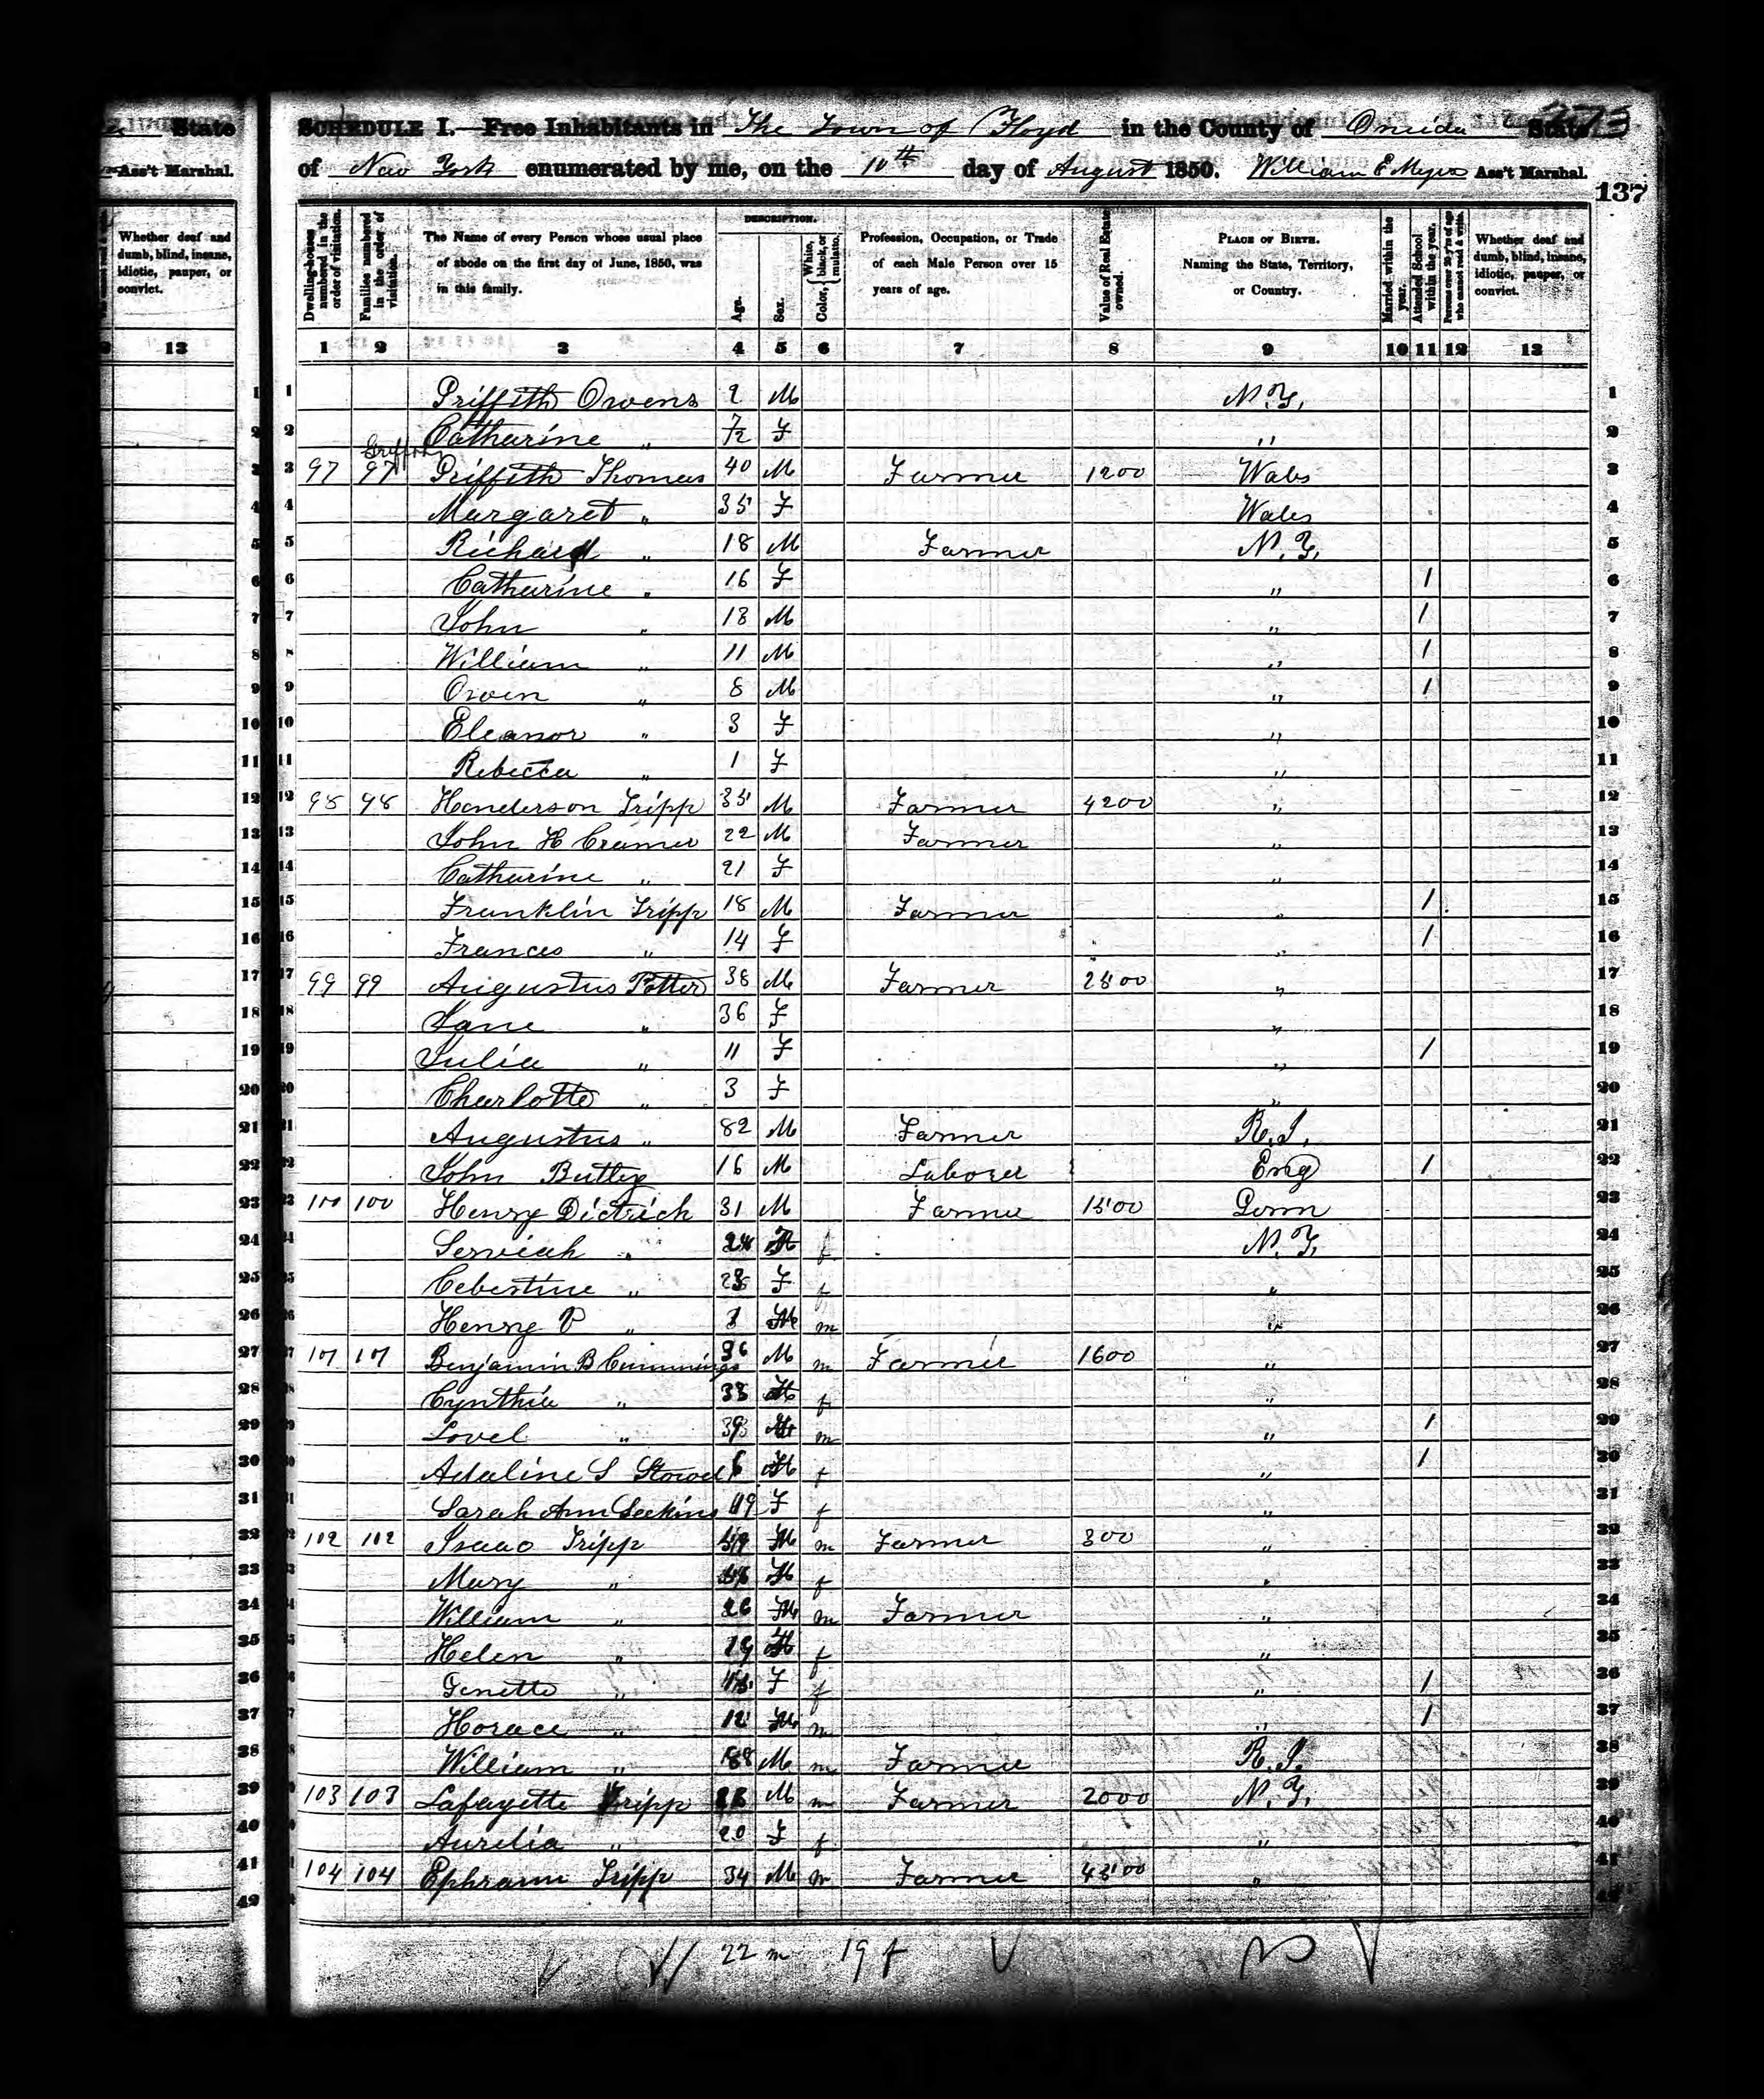 State
Ass't Marshal.
Whether deaf and dumb, blind, insane, idiotic, pauper, or convict.
13
273
SCHEDULE I.—Free Inhabitants in The Town of Floyd in the County of Oneida State
of New York enumerated by me, on the 10th day of August 1850. William E Myers Ass't Marshal.
137
Dwelling-houses numbered in the order of visitation. Families numbered in the order of visitation. The Name of every Person whose usual place of abode on the first day of June, 1850, was in this family. DESCRIPTION. Age. Sex. Color, White, black, or mulatto. Profession, Occupation, or Trade of each Male Person over 15 years of age. Value of Real Estate owned. PLACE OF BIRTH. Naming the State, Territory, or Country. Married within the year. Attended School within the year. Persons over 20 y'rs of age who cannot read & write. Whether deaf and dumb, blind, insane, idiotic, pauper, or convict.
1 2 3 4 5 6 7 8 9 10 11 12 13
1 Griffith Owens 2 M N.Y. 1
2 Catharine " 7/12 F " 2
Griffith
3 97 97 Griffith Thomas 40 M Farmer 1200 Wales 3
4 Margaret " 35 F Wales 4
5 Richard " 18 M Farmer N.Y. 5
6 Catharine " 16 F " 1 6
7 John " 13 M " 1 7
8 William " 11 M " 1 8
9 Owen " 8 M " 1 9
10 Eleanor " 3 F " 10
11 Rebecca " 1 F " 11
12 98 98 Henderson Tripp 35 M Farmer 4200 " 12
13 John H Cramer 22 M Farmer " 13
14 Catharine " 21 F " 14
15 Franklin Tripp 18 M Farmer " 1 15
16 Frances " 14 F " 1 16
17 99 99 Augustus Potter 38 M Farmer 2800 " 17
18 Jane " 36 F " 18
19 Julia " 11 F " 1 19
20 Charlotte " 3 F " 20
21 Augustus " 82 M Farmer R.I. 21
22 John 16 M Laborer Eng 1 22
23 100 100 Henry Dietrich 31 M Farmer 1500 23
24 " f N.Y. 24
25 " F f " 25
26 Henry P " m " 26
27 101 101 Benjamin B Cummings 36 M m Farmer 1600 " 27
28 Cynthia " f " 28
29 Lovel " m " 1 29
30 Adaline S f " 1 30
31 Sarah Ann F f " 31
32 102 102 Isaac Tripp m Farmer 300 " 32
33 Mary " f " 33
34 William " 26 m Farmer " 34
35 Helen " 19 f " 35
36 Genette " F f " 1 36
37 Horace " 12 m " 1 37
38 William " 88 M m Farmer R.I. 38
39 103 103 Lafayette Tripp M m Farmer 2000 N.Y. 39
40 Aurelia " 20 F f " 40
41 104 104 Ephraim Tripp 34 M m Farmer 4500 " 41
42
22 m 19 f